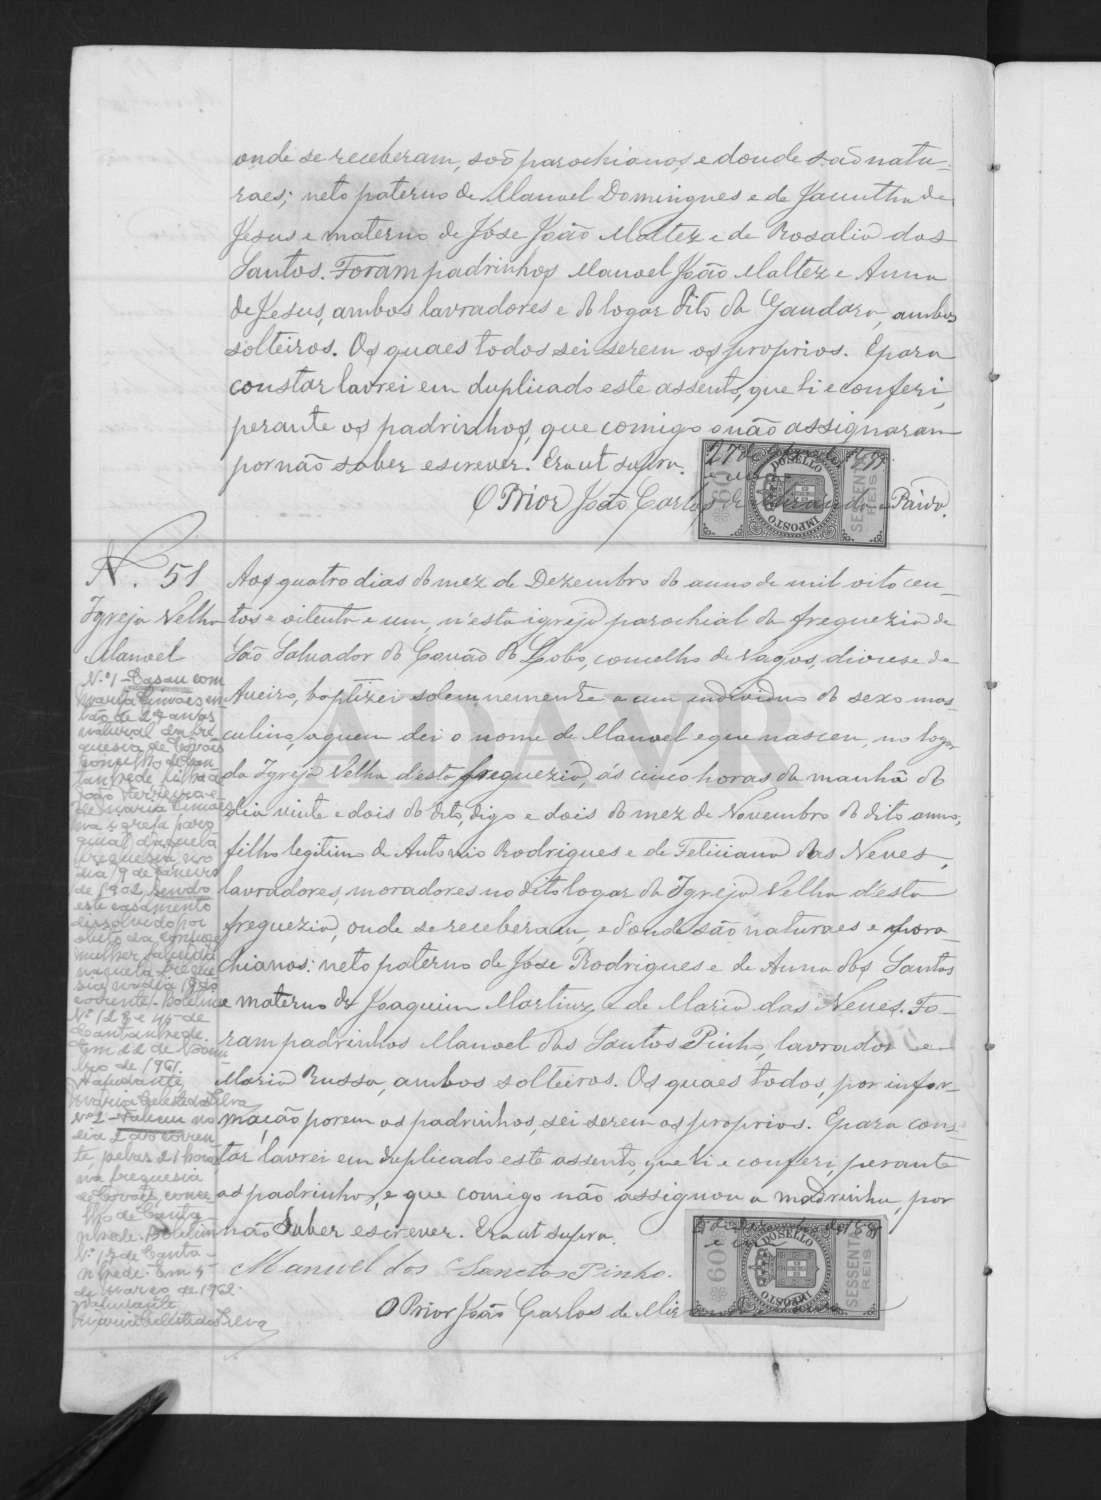 onde se receberam, são parochianos, e donde são natu-
raes; neto paterno de Manoel Domingues e de Jacintha de
Jesus e materno de José João Maltez e de Rosalia dos
Santos. Foram padrinhos Manoel João Maltez e Anna
de Jesus, ambos lavradores e do logar dito da Gandara, ambos
solteiros. Os quaes todos sei serem os proprios. E para
constar lavrei em duplicado este assento, que li e conferi,
perante os padrinhos, que comigo não assignaram
por não saber escrever. Era ut supra.
DO SELLO
IMPOSTO
60
SESSENTA
REIS
O Prior João Carlos de Miranda
N. 51
Igreja Velha
Manoel
Aos quatro dias do mez de Dezembro do anno de mil oito cen-
tos e oitenta e um, n'esta igreja parochial da freguezia de
São Salvador do Covão do Lobo, concelho de Vagos, diocese de
Aveiro, baptizei solemnemente a um individuo do sexo mas-
culino, a quem dei o nome de Manoel e que nasceu, no logar
da Igreja Velha d'esta freguezia, ás cinco horas da manhã do
dia vinte e dois do dito, digo e dois do mez de Novembro do dito anno,
filho legitimo de Antonio Rodrigues e de Feliciana das Neves,
lavradores, moradores no dito logar da Igreja Velha d'esta
freguezia, onde se receberam, e d'onde são naturaes e paro-
chianos: neto paterno de José Rodrigues e de Anna dos Santos
e materno de Joaquim Martins e de Maria das Neves. Fo-
ram padrinhos Manoel dos Santos Pinho, lavrador e
Maria Russa, ambos solteiros. Os quaes todos, por infor-
mação porem os padrinhos, sei serem os proprios. E para cons-
tar lavrei em duplicado este assento, que li e conferi, perante
os padrinhos, e que comigo não assignou a madrinha, por
não saber escrever. Era ut supra.
Manuel dos Sanctos Pinho.
O Prior João Carlos de Mir
DO SELLO
IMPOSTO
60
SESSENTA
REIS
N.º 1 - Casou com
Maria Simões em
de 29 anos
natural da fre
guesia de Covões
concelho de Can
tanhede, filha de
João Ferreira e
de Maria Simões
na igreja paro
quial daquela
freguesia no
dia 19 de Janeiro
de 1902, sendo
este casamento
dissolvido por
óbito da
mulher falecida
naquela fregue
sia no dia
corrente. Boletins
N.º 123 e 45 de
Cantanhede.
Em 22 de Novem
bro de 1961.
A ajudante,
Maria Silva
N.º 2 - Faleceu no
dia 2 do corren
te, pelas 21 horas
na freguesia
de Covões, conce
lho de Canta-
nhede. Boletim
N.º 17 de Canta-
nhede. Em 5
de Março de 1962.
A ajudante
Silva
ADAVR